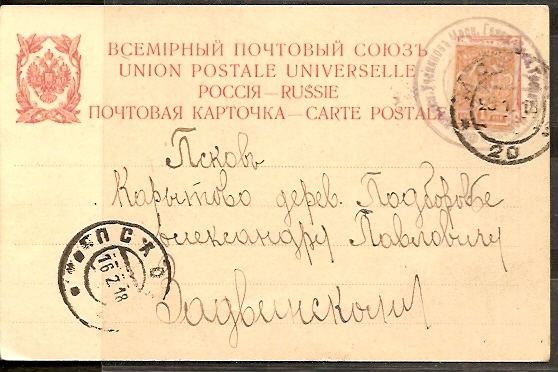 ВСЕМІРНЫЙ ПОЧТОВЫЙ СОЮЗЪ
UNION POSTALE UNIVERSELLE
РОССІЯ—RUSSIE
ПОЧТОВАЯ КАРТОЧКА—CARTE POSTALE
20
Псковъ
Карытово дерев. Подборовье
Александру Павловичу
Задвинскому
ПСКО
16 2 18